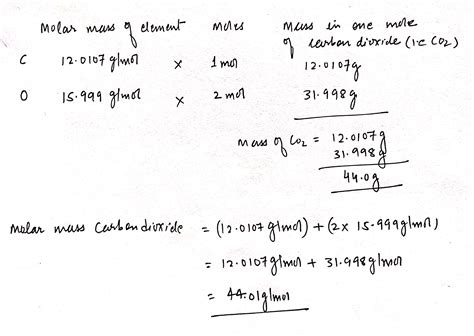 Molar mass of element moles Mass in one mole
of carbon dioxide (i.e CO2)
C 12.0107 g/mol × 1 mol 12.0107g
O 15.999 g/mol × 2 mol 31.998g
Mass of CO2 = 12.0107g
31.998g
44.0g
Molar mass Carbondioxide = (12.0107 g/mol) + (2 x 15.999g/mol)
= 12.0107g/mol + 31.998g/mol
= 44.01g/mol